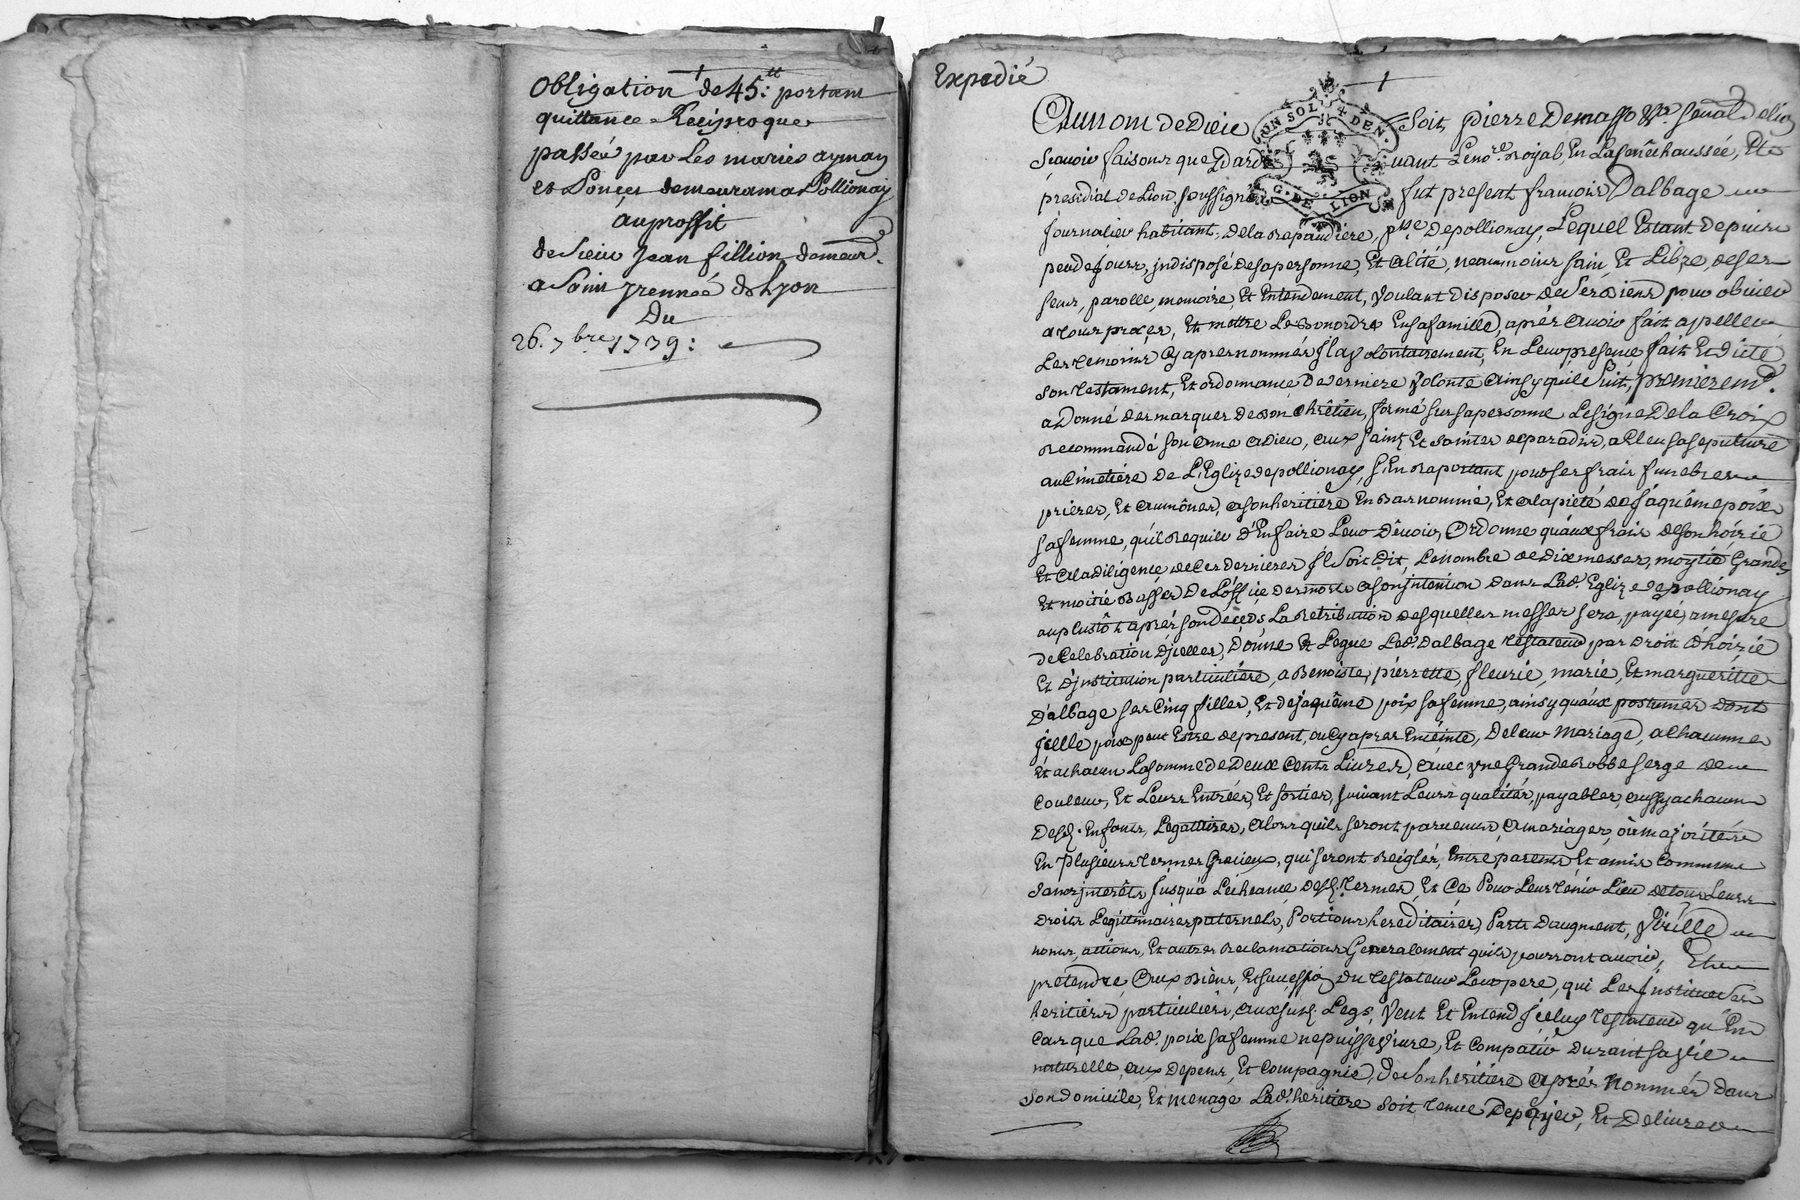 obligation de 45.tt portant
quittance Reciproque
passée par Les mariés aymay
et Ponçet demeurant a Pollionay
au proffit
de sieur Jean fillion demeur.
a Saint jrennée de Lyon
Du
26. 7bre 1739:
Expedié
UN SOL 4 DEN
G. DE LION
Au nom de Dieu Soit
Scavoir faisons que Pardevant Le nore Royal En La senêchaussée, Et
presidial de Lion soussigné fut present francois Dalbage
journalier habitant de la Repaudiere, psse de pollionay, Lequel Estant depuis
peu de jours, jndisposé de sa personne, Et alité, neanmoins sain Et Libre, de ses
sens, parolle, memoire, Et Entendement, voulant disposer de ses Biens pour obvier
a tous proçes, Et mettre Le Bon ordre En sa famille, aprés avoir fait apeller
Les temoins cy aprés nommés jl a volontairement, En Leur presençe, fait Et dicté
son testament, Et ordonnançe De derniere volonté ainsy qu'il suit, premieremt.
a Donné des marques de Bon chrêtien, formé sur sa personne Le signe De la Croix
Recommandé son ame a dieu, aux saints Et saintes de paradis, a Eleu sa sepulture
au Cimetiere de L'Eglize de pollionay, s'En Raportant pour ses frais funebres
prieres, Et aumônes, a son heritiére En Bas nommé, Et a la pieté de jaquéme poix
sa femme, qu'il Requier d'En faire Leur Dêvoir, Ordonne qu'aux frais de son hoirié
Et a la diligençe de Ces derrieres jl soit dit, Le nombre de dix messes, moytié Grandes
Et moitié Basses De L'offiçe des morts a son jntention dans Lad. Eglize de pollionay
au plustôt aprés son Deçeds La Retribution desquelles messes sera payée, a mesure
de Celebration d'jcelles, Donne Et Legue Led. Dalbage testateur par Droit d'hoirié
Et d'jnstitution particuliére, a Benoiste, pierrette, fleurie, marie, Et margueritte
Dalbage ses Cinq filles, Et de jaquême poix sa femme, ainsy qu'aux postumes dont
jcelle poix peut Estre de present, ou Cy aprés Enceinte, De Leur mariage, a chacunne
Et a chacun La somme de Deux Cents Livres, avec une Grande Robbe serge de
Couleur, Et Leurs Entrées, Et sorties, suivant Leurs qualités, payables, aussy a chacun
Desd. Enfants, Legattaires, alors qu'ils seront parvenus, a mariages, ou majorités
En plusieurs termes Gracieux, qui seront Reiglés, Entre parents Et amis Communs
sans jnterêts jusqu'a L'echeançe desd. termes, Et Ce Pour Leur tenir Lieu de tous Leurs
Droits Legittimaires paternels, Portions hereditaires, Parts d'augment, virille
noms, actions, Et autres Reclamations Generalement qu'ils pourront avoir, Et
prétendre, aux Biens, Et succession du testateur Leur pere, qui Les jnstitue ses
heritiers particuliers, auxsusd. Legs, Veut Et Entend jceluy testateur qu'En
Cas que Lad. poix sa femme ne puisse vivre, Et compatir Durant sa vie
naturelle, aux depens, Et Compagnie, de son heritiére aprés nommée dans
son domicile, Et menage Lad. heritiére soit tenue De payer, Et Delivrer